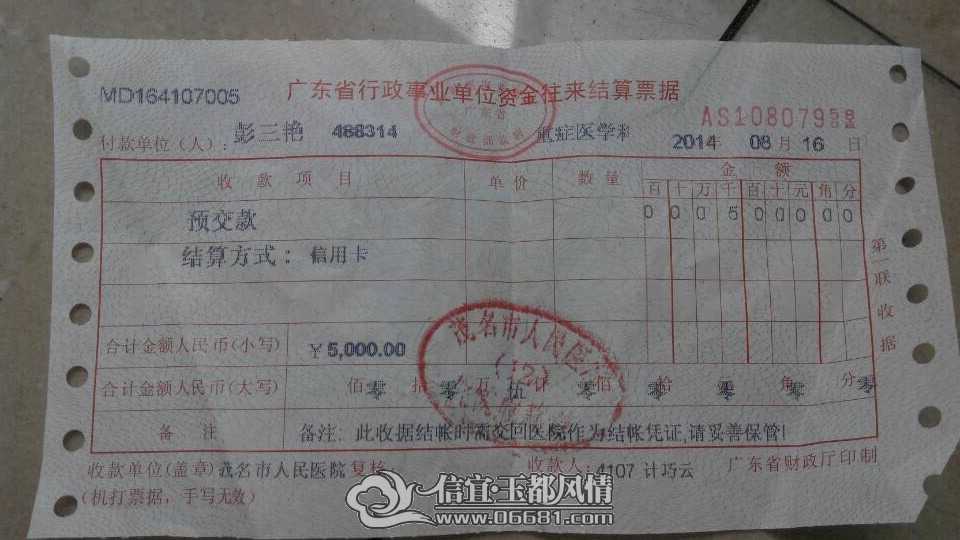 广东省行政事业单位资金往来结算票据
MD164107005
AS10807959
付款单位(人): 彭三艳 488314 重症医学科 2014年 08月 16日
收款项目 单价 数量 金额
百 十 万 千 百 十 元 角 分
预交款 0 0 0 5 0 0 0 0 0
结算方式: 信用卡
合计金额人民币(小写) ¥5,000.00
合计金额人民币(大写) 佰 零 拾 零 万 伍 仟 零 佰 零 拾 零 角 零 分 零
备注 备注: 此收据结帐时需交回医院作为结帐凭证,请妥善保管!
收款单位(盖章) 茂名市人民医院 复核: 收款人: 4107 计巧云 广东省财政厅印制
(机打票据,手写无效)
第一联收据
茂名市人民医
(12)
信宜·玉都风情
www.06681.com